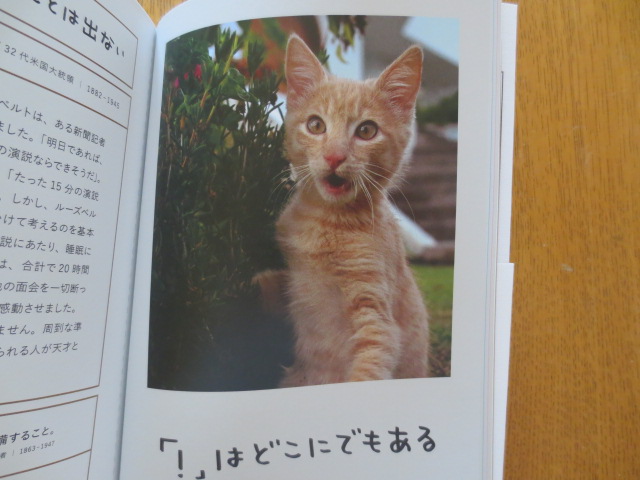 ことは出ない
32代米国大統領 | 1882-1945
ベルトは、ある新聞記者
ました。「明日であれば、
の演説ならできそうだ」。
「たった15分の演説
。しかし、ルーズベル
かけて考えるのを基本
説にあたり、睡眠に
は、合計で20時間
他の面会を一切断っ
感動させました。
ません。周到な準
られる人が天才と
備すること。
者 | 1863-1947
「!」はどこにでもある